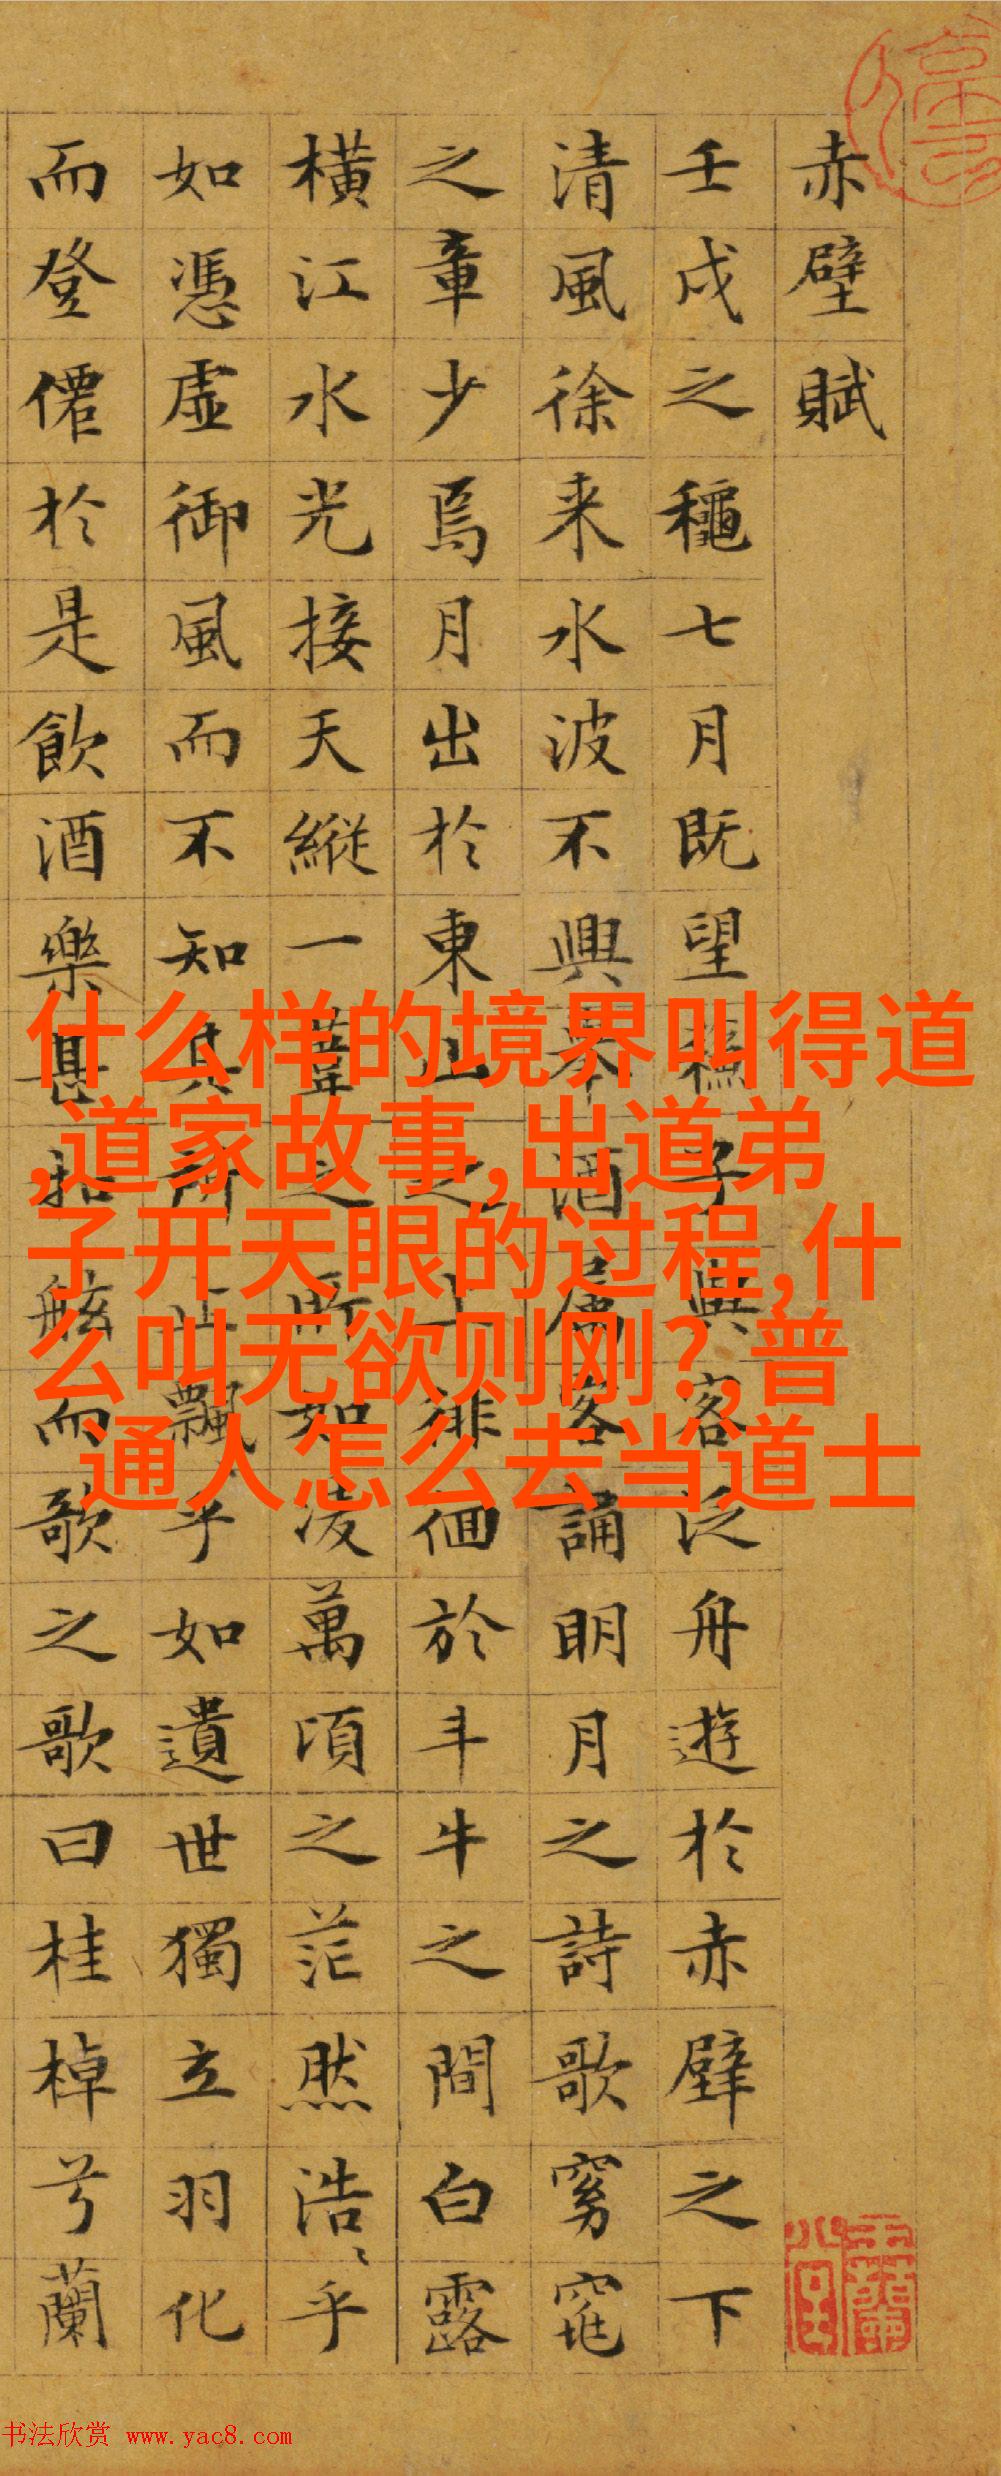 赤壁賦
壬戌之龝七月既望蘓子與客泛舟遊於赤壁之下
清風徐来水波不興舉酒属客誦明月之詩歌窈窕
之章少焉月出於東山之上徘徊於斗牛之間白露
橫江水光接天縱一葦之所如凌萬頃之茫然浩〻乎
如憑虛御風而不知其所止飄乎如遺世獨立羽化
而登僊於是飲酒樂甚扣舷而歌之歌曰桂棹兮蘭
什么样的境界叫得道
,道家故事,出道弟
子开天眼的过程,什
么叫无欲则刚?,普
通人怎么去当道士
书法欣赏 www.yac8.com